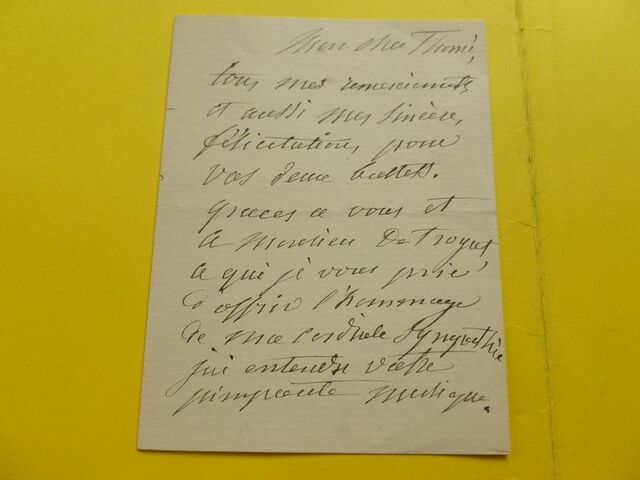 Mon cher Thomé,
tous mes remerciements
et aussi mes sincères
félicitations pour
vos deux ballets.
graces a vous et
a Monsieur De Troyes
a qui je vous prie
d'offrir l'hommage
de ma cordiale sympathie
j'ai entendu votre
pimpante musique.